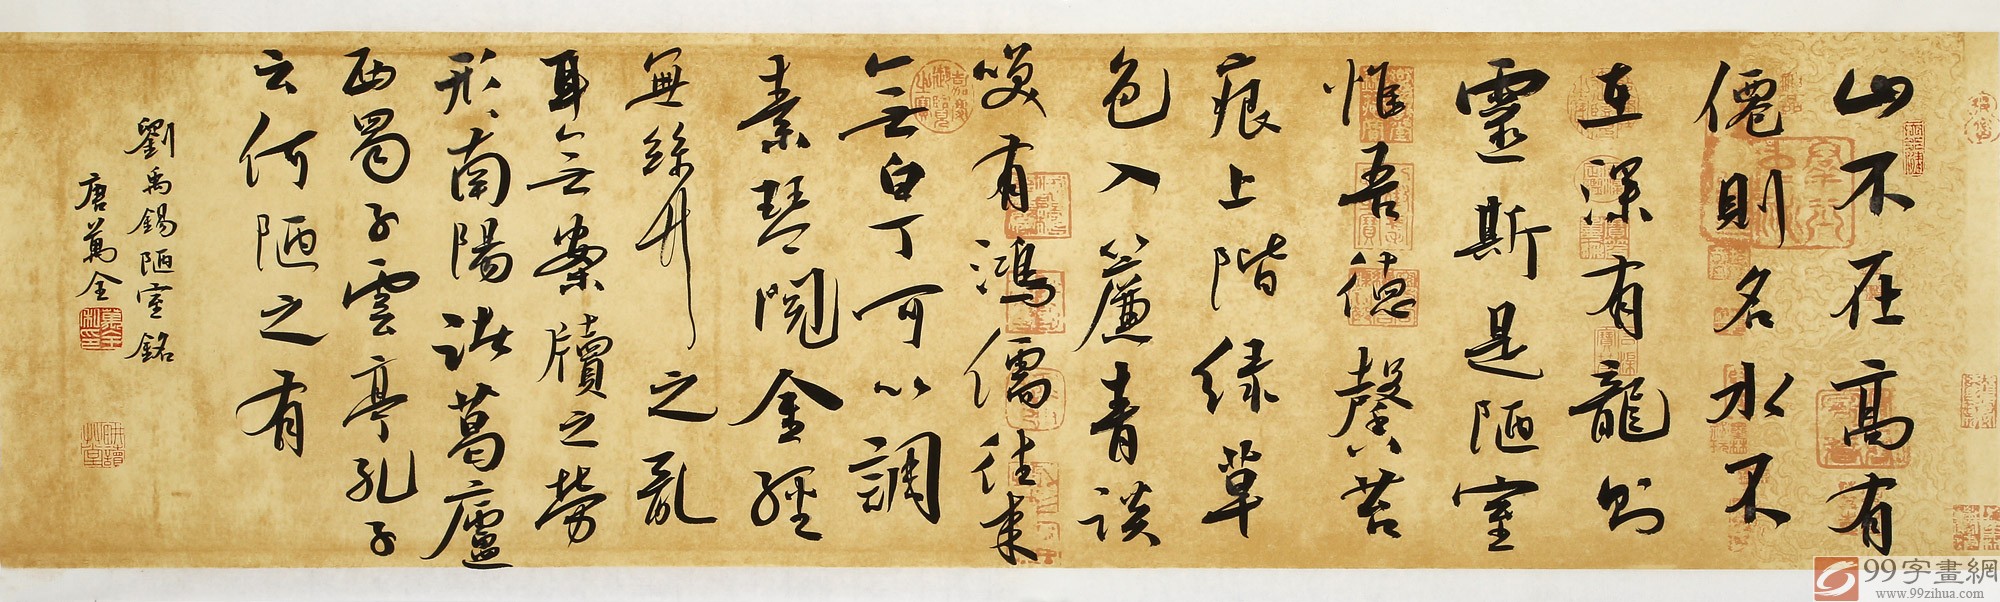 山不在高有
僊則名水不
在深有龍則
靈斯是陋室
惟吾德馨苔
痕上階绿草
色入簾青談
笑有鴻儒往来
無白丁可以調
素琴閲金經
無絲竹之亂
耳無案牘之勞
形南陽諸葛廬
西蜀子雲亭孔子
云何陋之有
劉禹錫陋室銘
唐萬全
99字畫網
www.99zihua.com